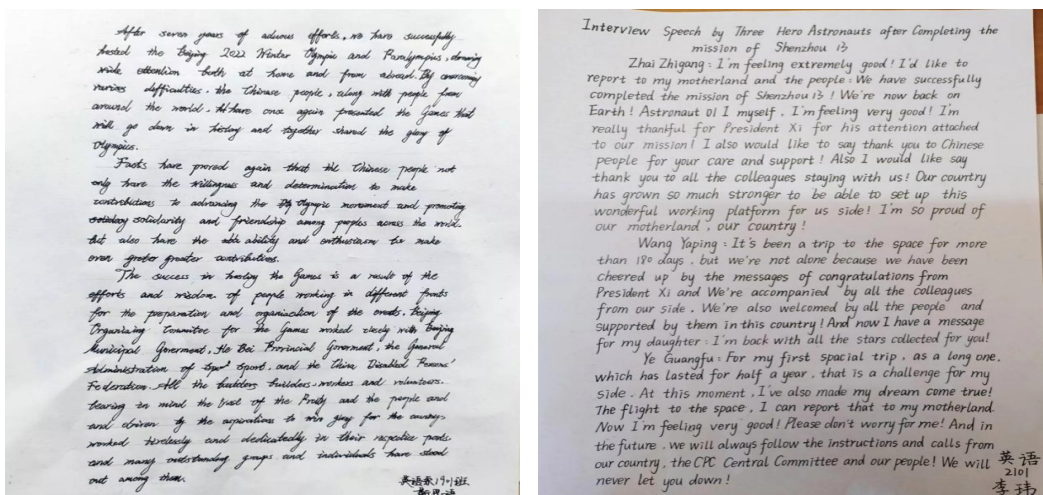 After seven years of aduous efforts, we have successfully
hosted the Beijing 2022 Winter Olympic and Paralympics, drawing
wide attention both at home and from abroad. By overcoming
various difficulties, the Chinese people, along with people from
around the world. have once again presented the Games that
will go down in history and together shared the glory of
Olympics.
Facts have proved again that the Chinese people not
only have the willingness and determination to make
contributions to advancing the Olympic movement and promoting
solidarity and friendship among peoples across the world.
but also have the ability and enthusiasm to make
even greater contributions.
The success in hosting the Games is a result of the
efforts and wisdom of people working in different fronts
for the preparation and organization of the events. Beijing
Organizing Committee for the Games worked closely with Beijing
Municipal Goverment, He Bei Provincial Goverment, the General
Administration of Sport, and the China Disabled Persons'
Federation. All the builders. workers and volunteers.
bearing in mind the trust of the Party and the people and
and driven by the aspirations to win glory for the country.
worked tirelessly and dedicatedly in their respective posts
and many outstanding groups and individuals have stood
out among them.
英语系1901班
Interview Speech by Three Hero Astronauts after Completing the
mission of Shenzhou 13
Zhai Zhigang : I'm feeling extremely good ! I'd like to
report to my motherland and the people : We have successfully
completed the mission of Shenzhou 13 ! We're now back on
Earth ! Astronaut 01 I myself , I'm feeling very good ! I'm
really thankful for President Xi for his attention attached
to our mission ! I also would like to say thank you to Chinese
people for your care and support ! Also I would like say
thank you to all the colleagues staying with us ! Our country
has grown so much stronger to be able to set up this
wonderful working platform for us side ! I'm so proud of
our motherland , our country !
Wang Yaping : It's been a trip to the space for more
than 180 days , but we're not alone because we have been
cheered up by the messages of congratulations from
President Xi and We're accompanied by all the colleagues
from our side . We're also welcomed by all the people and
supported by them in this country ! And now I have a message
for my daughter : I'm back with all the stars collected for you!
Ye Guangfu : For my first spacial trip , as a long one,
which has lasted for half a year , that is a challenge for my
side . At this moment , I've also made my dream come true!
The flight to the space , I can report that to my motherland.
Now I'm feeling very good ! Please don't worry for me ! And in
the future , we will always follow the instructions and calls from
our country , the CPC Central Committee and our people ! We will
never let you down !
英语
2101
李玮